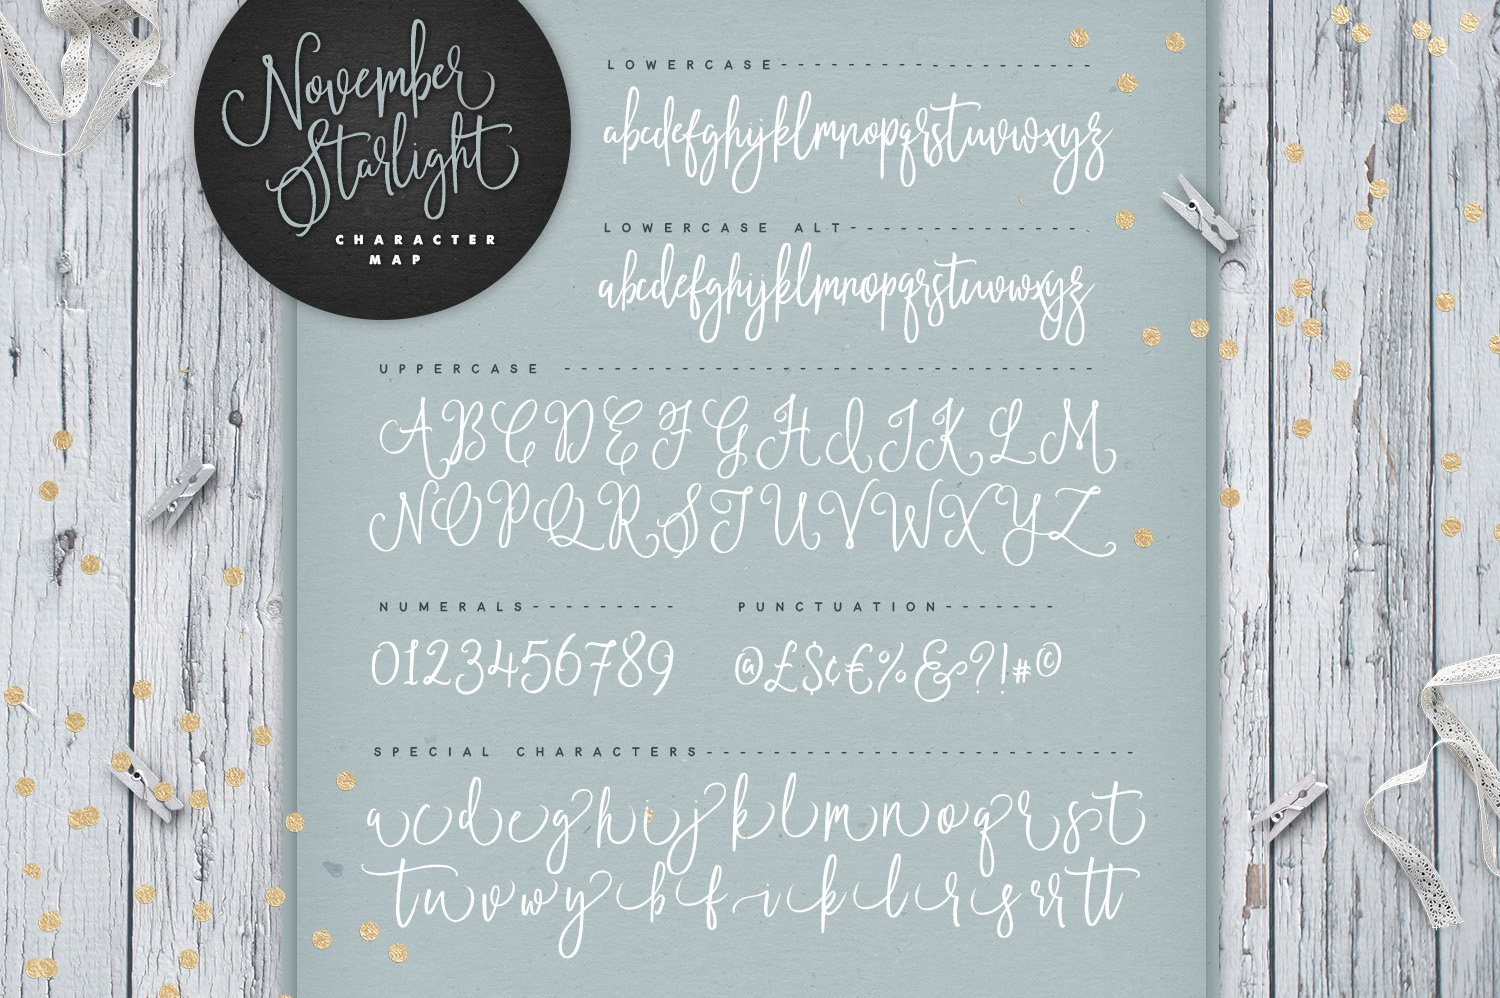 November
Starlight
CHARACTER
MAP
LOWERCASE
abcdefghijklmnopqrstuvwxyz
LOWERCASE ALT
abcdefghijklmnopqrstuvwxyz
UPPERCASE
ABCDEFGHIJKLM
NOPQRSTUVWXYZ
NUMERALS
0123456789
PUNCTUATION
@£$¢€%&?!#©
SPECIAL CHARACTERS
acdeghijklmnoqrst
tuvwybfiklrsrrtt